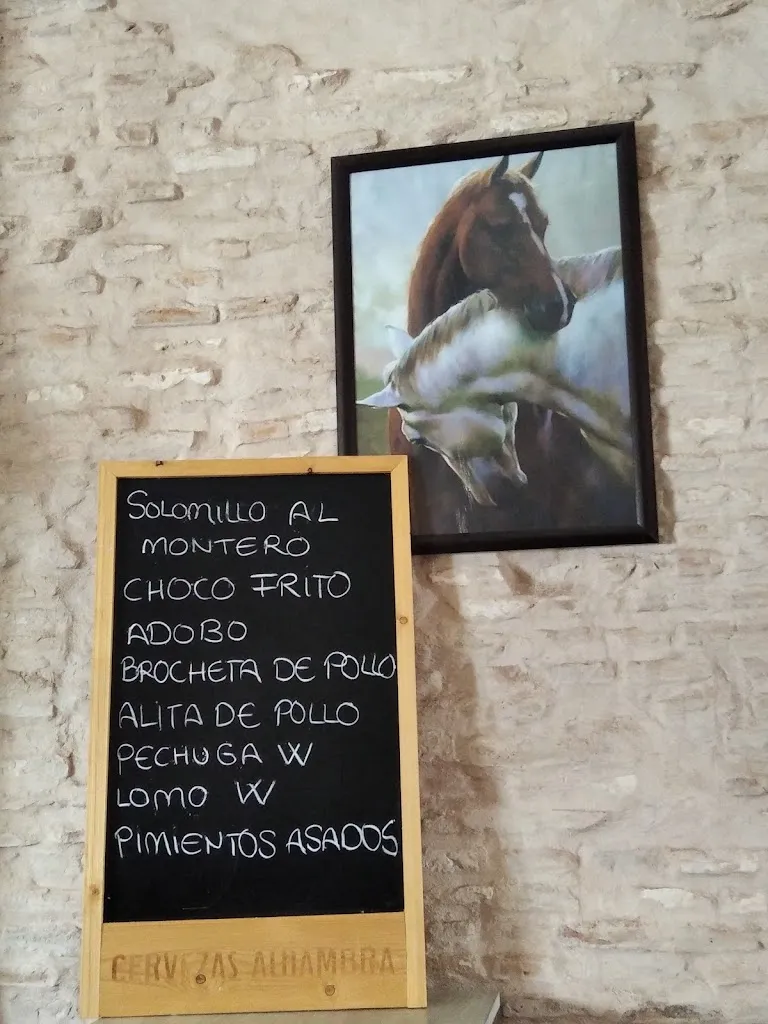 SOLOMILLO AL
MONTERO
CHOCO FRITO
ADOBO
BROCHETA DE POLLO
ALITA DE POLLO
PECHUGA W
LOMO W
PIMIENTOS ASADOS
CERVEZAS ALHAMBRA